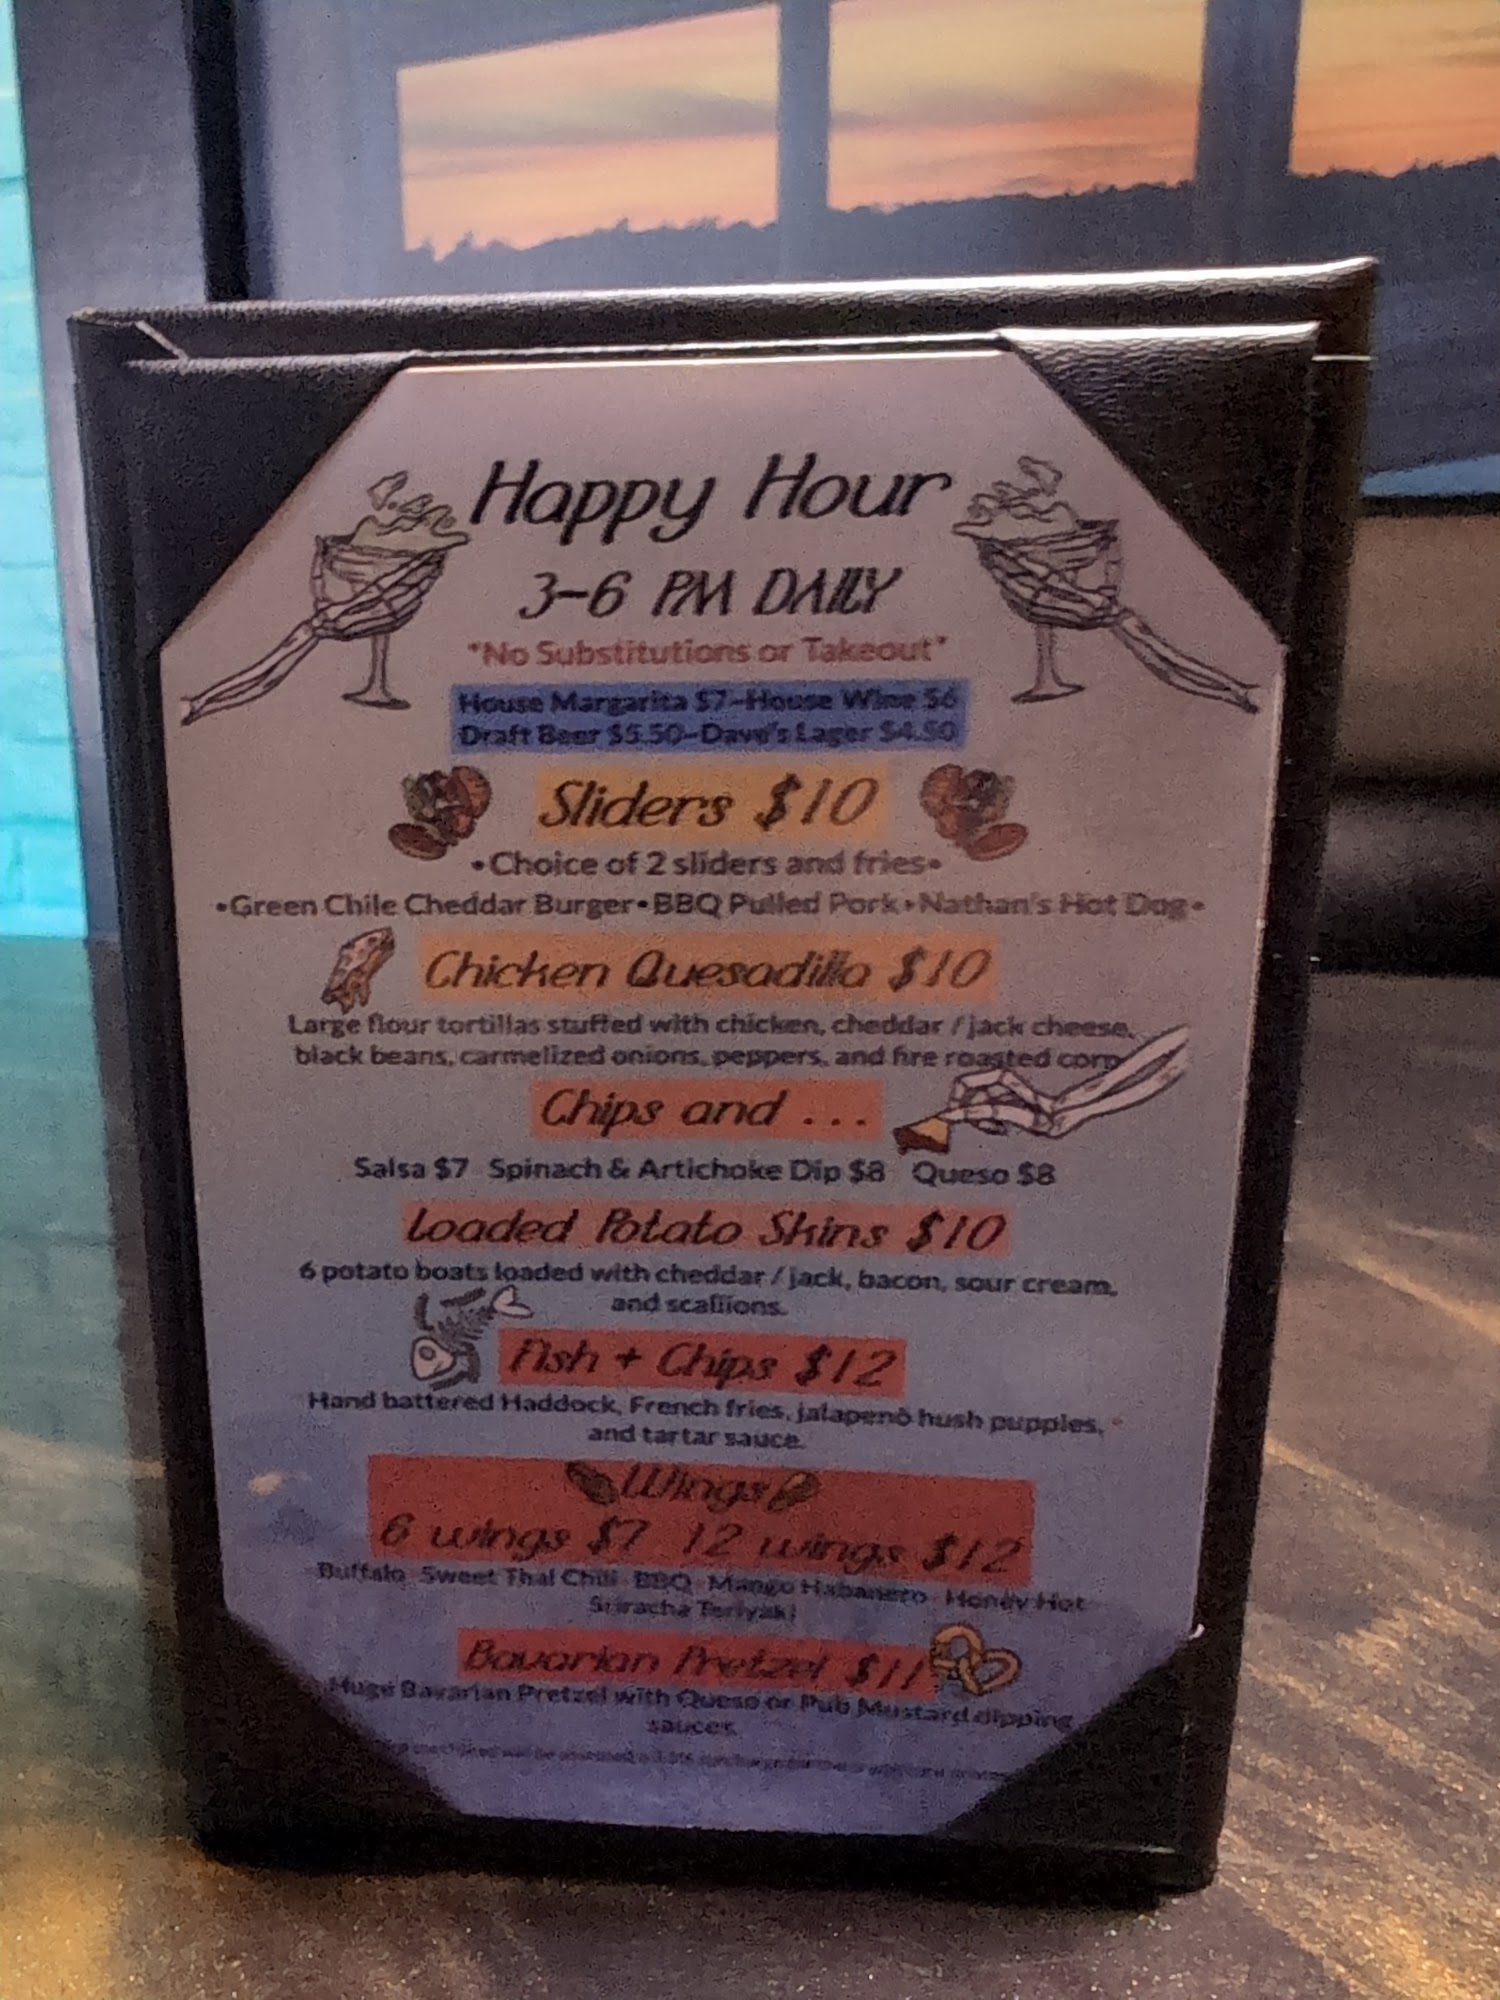 Happy Hour
3-6 PM DAILY
*No Substitutions or Takeout*
House Margarita $7-House Wine $6
Draft Beer $5.50-Dave's Lager $4.50
Sliders $10
•Choice of 2 sliders and fries•
•Green Chile Cheddar Burger•BBQ Pulled Pork•Nathan's Hot Dog•
Chicken Quesadilla $10
Large flour tortillas stuffed with chicken, cheddar / jack cheese,
black beans, carmelized onions, peppers, and fire roasted corn
Chips and ...
Salsa $7 Spinach & Artichoke Dip $8 Queso $8
Loaded Potato Skins $10
6 potato boats loaded with cheddar / jack, bacon, sour cream,
and scallions.
Fish + Chips $12
Hand battered Haddock, French fries, jalapenõ hush puppies,
and tartar sauce.
Wings
6 wings $7 12 wings $12
Buffalo Sweet Thai Chili BBQ Mango Habanero Honey Hot
Sriracha Teriyaki
Bavarian Pretzel $11
Huge Bavarian Pretzel with Queso or Pub Mustard dipping
sauces.